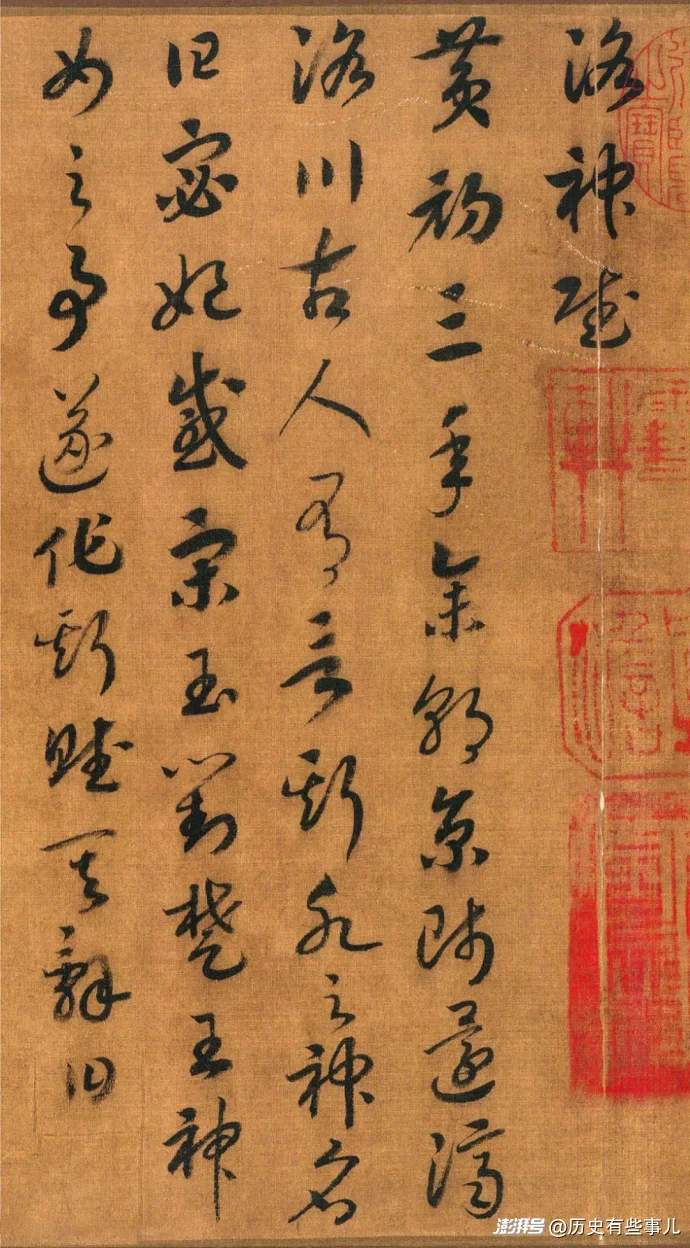 洛神賦
黄初三年余朝京師還濟
洛川古人有言斯水之神名
曰宓妃感宋玉對楚王神
女之事遂作斯賦其辭曰
澎湃号@历史有些事儿